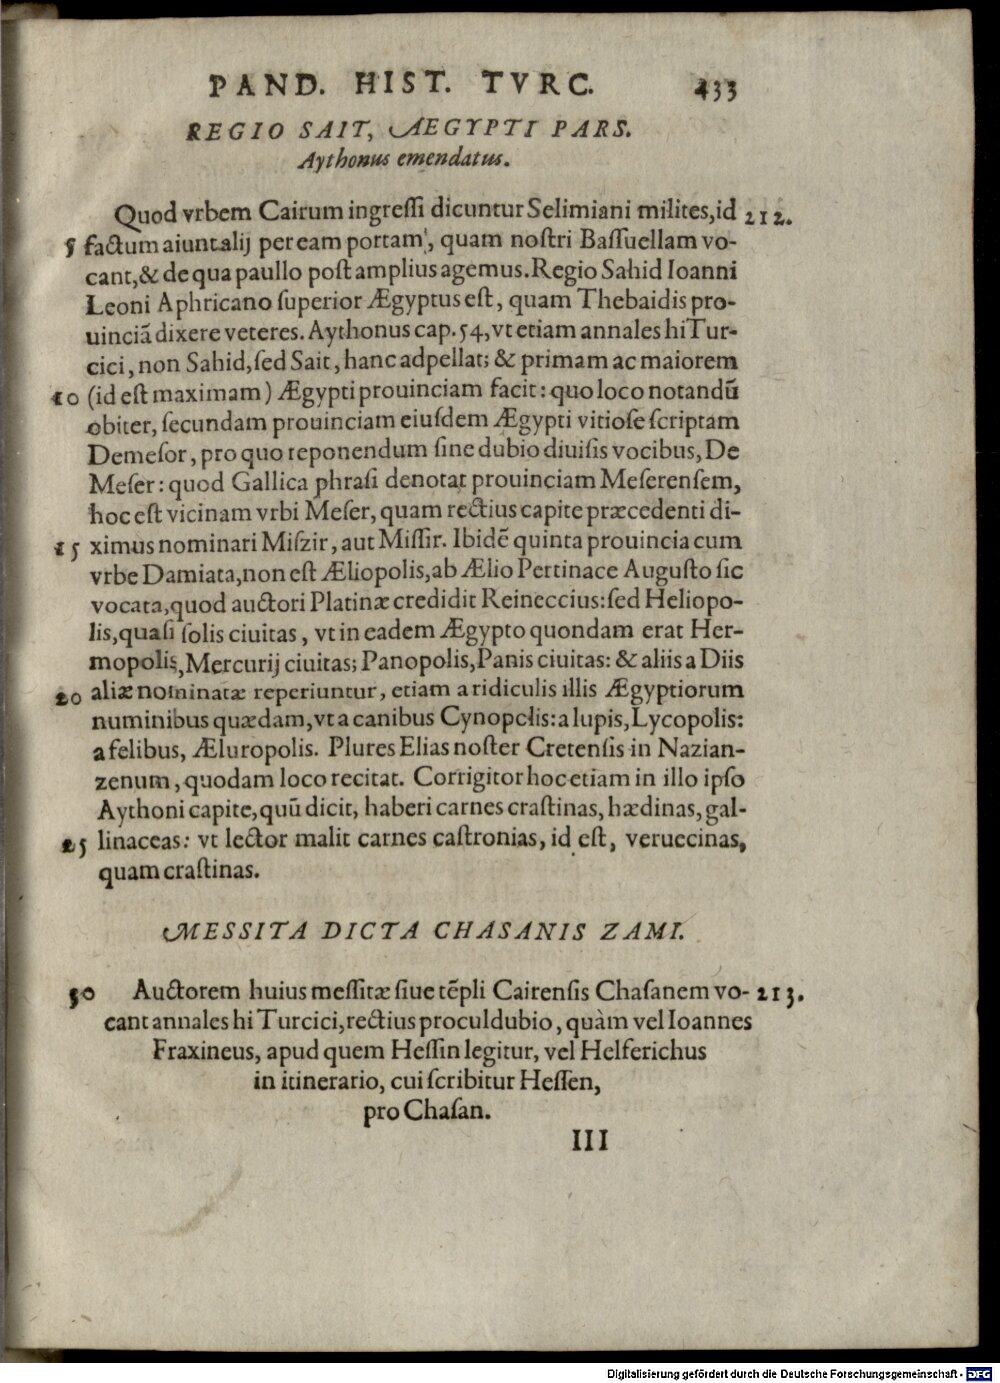 PAND. HIST. TVRC. 433
REGIO SAIT, AEGYPTI PARS.
Aythonus emendatus.
Quod vrbem Cairum ingreſſi dicuntur Selimiani milites, id 212.
5 factum aiunt alij per eam portam, quam noſtri Baſſuellam vo-
cant, & de qua paullo poſt amplius agemus. Regio Sahid Ioanni
Leoni Aphricano ſuperior Ægyptus eſt, quam Thebaidis pro-
uinciã dixere veteres. Aythonus cap. 54, vt etiam annales hi Tur-
cici, non Sahid, ſed Sait, hanc adpellat; & primam ac maiorem
10 (id eſt maximam) Ægypti prouinciam facit: quo loco notandũ
obiter, ſecundam prouinciam eiuſdem Ægypti vitioſe ſcriptam
Demeſor, pro quo reponendum ſine dubio diuiſis vocibus, De
Meſer: quod Gallica phraſi denotat prouinciam Meſerenſem,
hoc eſt vicinam vrbi Meſer, quam rectius capite præcedenti di-
15 ximus nominari Miſzir, aut Miſſir. Ibidẽ quinta prouincia cum
vrbe Damiata, non eſt Æliopolis, ab Ælio Pertinace Auguſto ſic
vocata, quod auctori Platinæ credidit Reineccius: ſed Heliopo-
lis, quaſi ſolis ciuitas, vt in eadem Ægypto quondam erat Her-
mopolis, Mercurij ciuitas; Panopolis, Panis ciuitas: & aliis a Diis
20 aliæ nominatæ reperiuntur, etiam a ridiculis illis Ægyptiorum
numinibus quædam, vt a canibus Cynopolis: a lupis, Lycopolis:
a felibus, Æluropolis. Plures Elias noſter Cretenſis in Nazian-
zenum, quodam loco recitat. Corrigitor hoc etiam in illo ipſo
Aythoni capite, quũ dicit, haberi carnes craſtinas, hædinas, gal-
25 linaceas: vt lector malit carnes caſtronias, id eſt, veruecinas,
quam craſtinas.
MESSITA DICTA CHASANIS ZAMI.
30 Auctorem huius meſſitæ ſiue tẽpli Cairenſis Chaſanem vo- 213.
cant annales hi Turcici, rectius proculdubio, quàm vel Ioannes
Fraxineus, apud quem Heſſin legitur, vel Helferichus
in itinerario, cui ſcribitur Heſſen,
pro Chaſan.
III
Digitalisierung gefördert durch die Deutsche Forschungsgemeinschaft - DFG